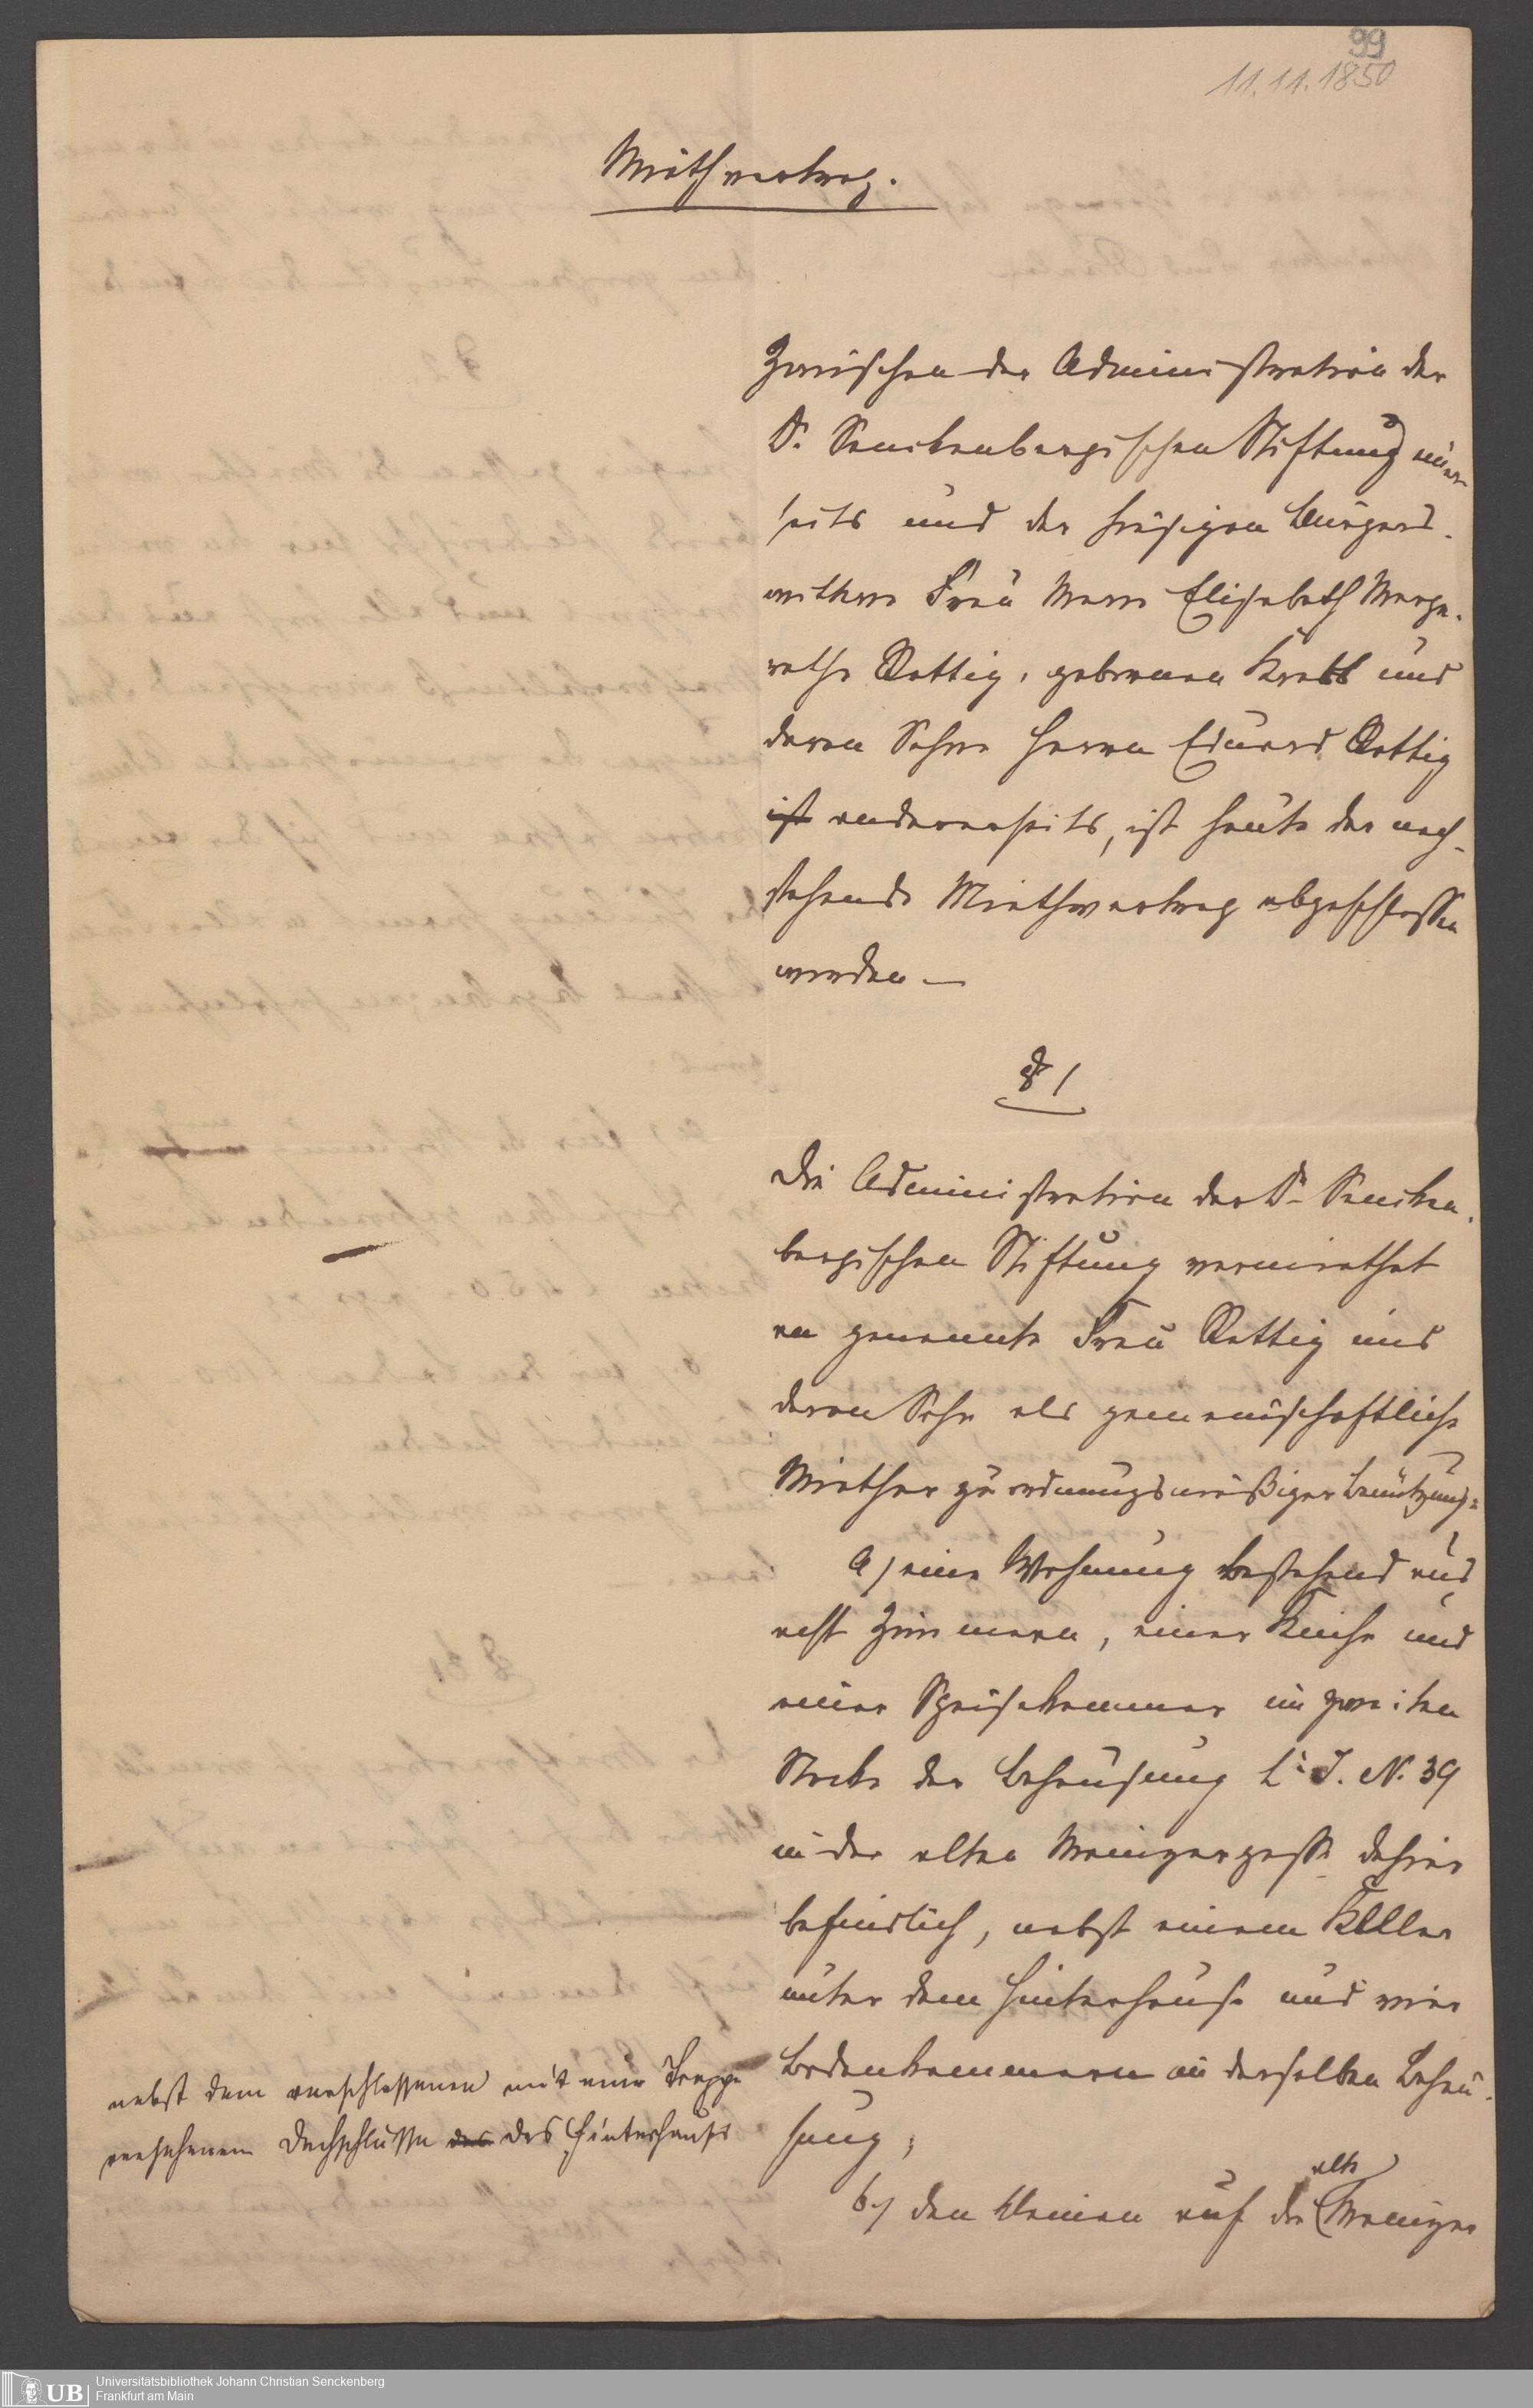 99
11.11.1850
Miethvertrag.
Zwischen der Administration der
Dr. Senckenbergischen Stiftung einer-
seits und der hiesigen Bürgers-
wittwe Frau Maria Elisabeth Marga-
rethe Rettig, geborenen Krebs und
deren Sohne Herrn Eduard Rettig
ist andererseits, ist heute der nach-
stehende Miethvertrag abgeschlossen
worden —
§ 1
Die Administration der Dr. Sencken-
bergischen Stiftung vermiethet
an genannte Frau Rettig und
deren Sohn als gemeinschaftliche
Miether zu ordnungsmäßiger Benützung:
a) eine Wohnung bestehend aus
acht Zimmern, einer Küche und
einer Speisekammer im zweiten
Stocke der Behausung Lit. J. No. 39
in der alten Mainzergasse dahier
befindlich, nebst einem Keller
unter dem Hinterhause und vier
Bodenkammern in derselben Behau-
sung;
nebst dem verschlossenen mit einer Treppe
versehenen des des Hinterhauses
b) den kleinen auf die alte Mainzer
Universitätsbibliothek Johann Christian Senckenberg
Frankfurt am Main
UB